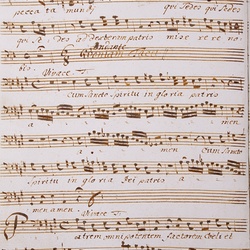 pecca ta mundi qui Sedes qui Sedes
qui sedes ad dexteram patris mise re re no
Andante
bis
Vivace
Cum Sancto Spiritu in gloria patris
a men
a men Cum Sancto
Spiritu in gloria Dei patris a
men amen
Vivace
Patrem omnipotentem factorem coeli et